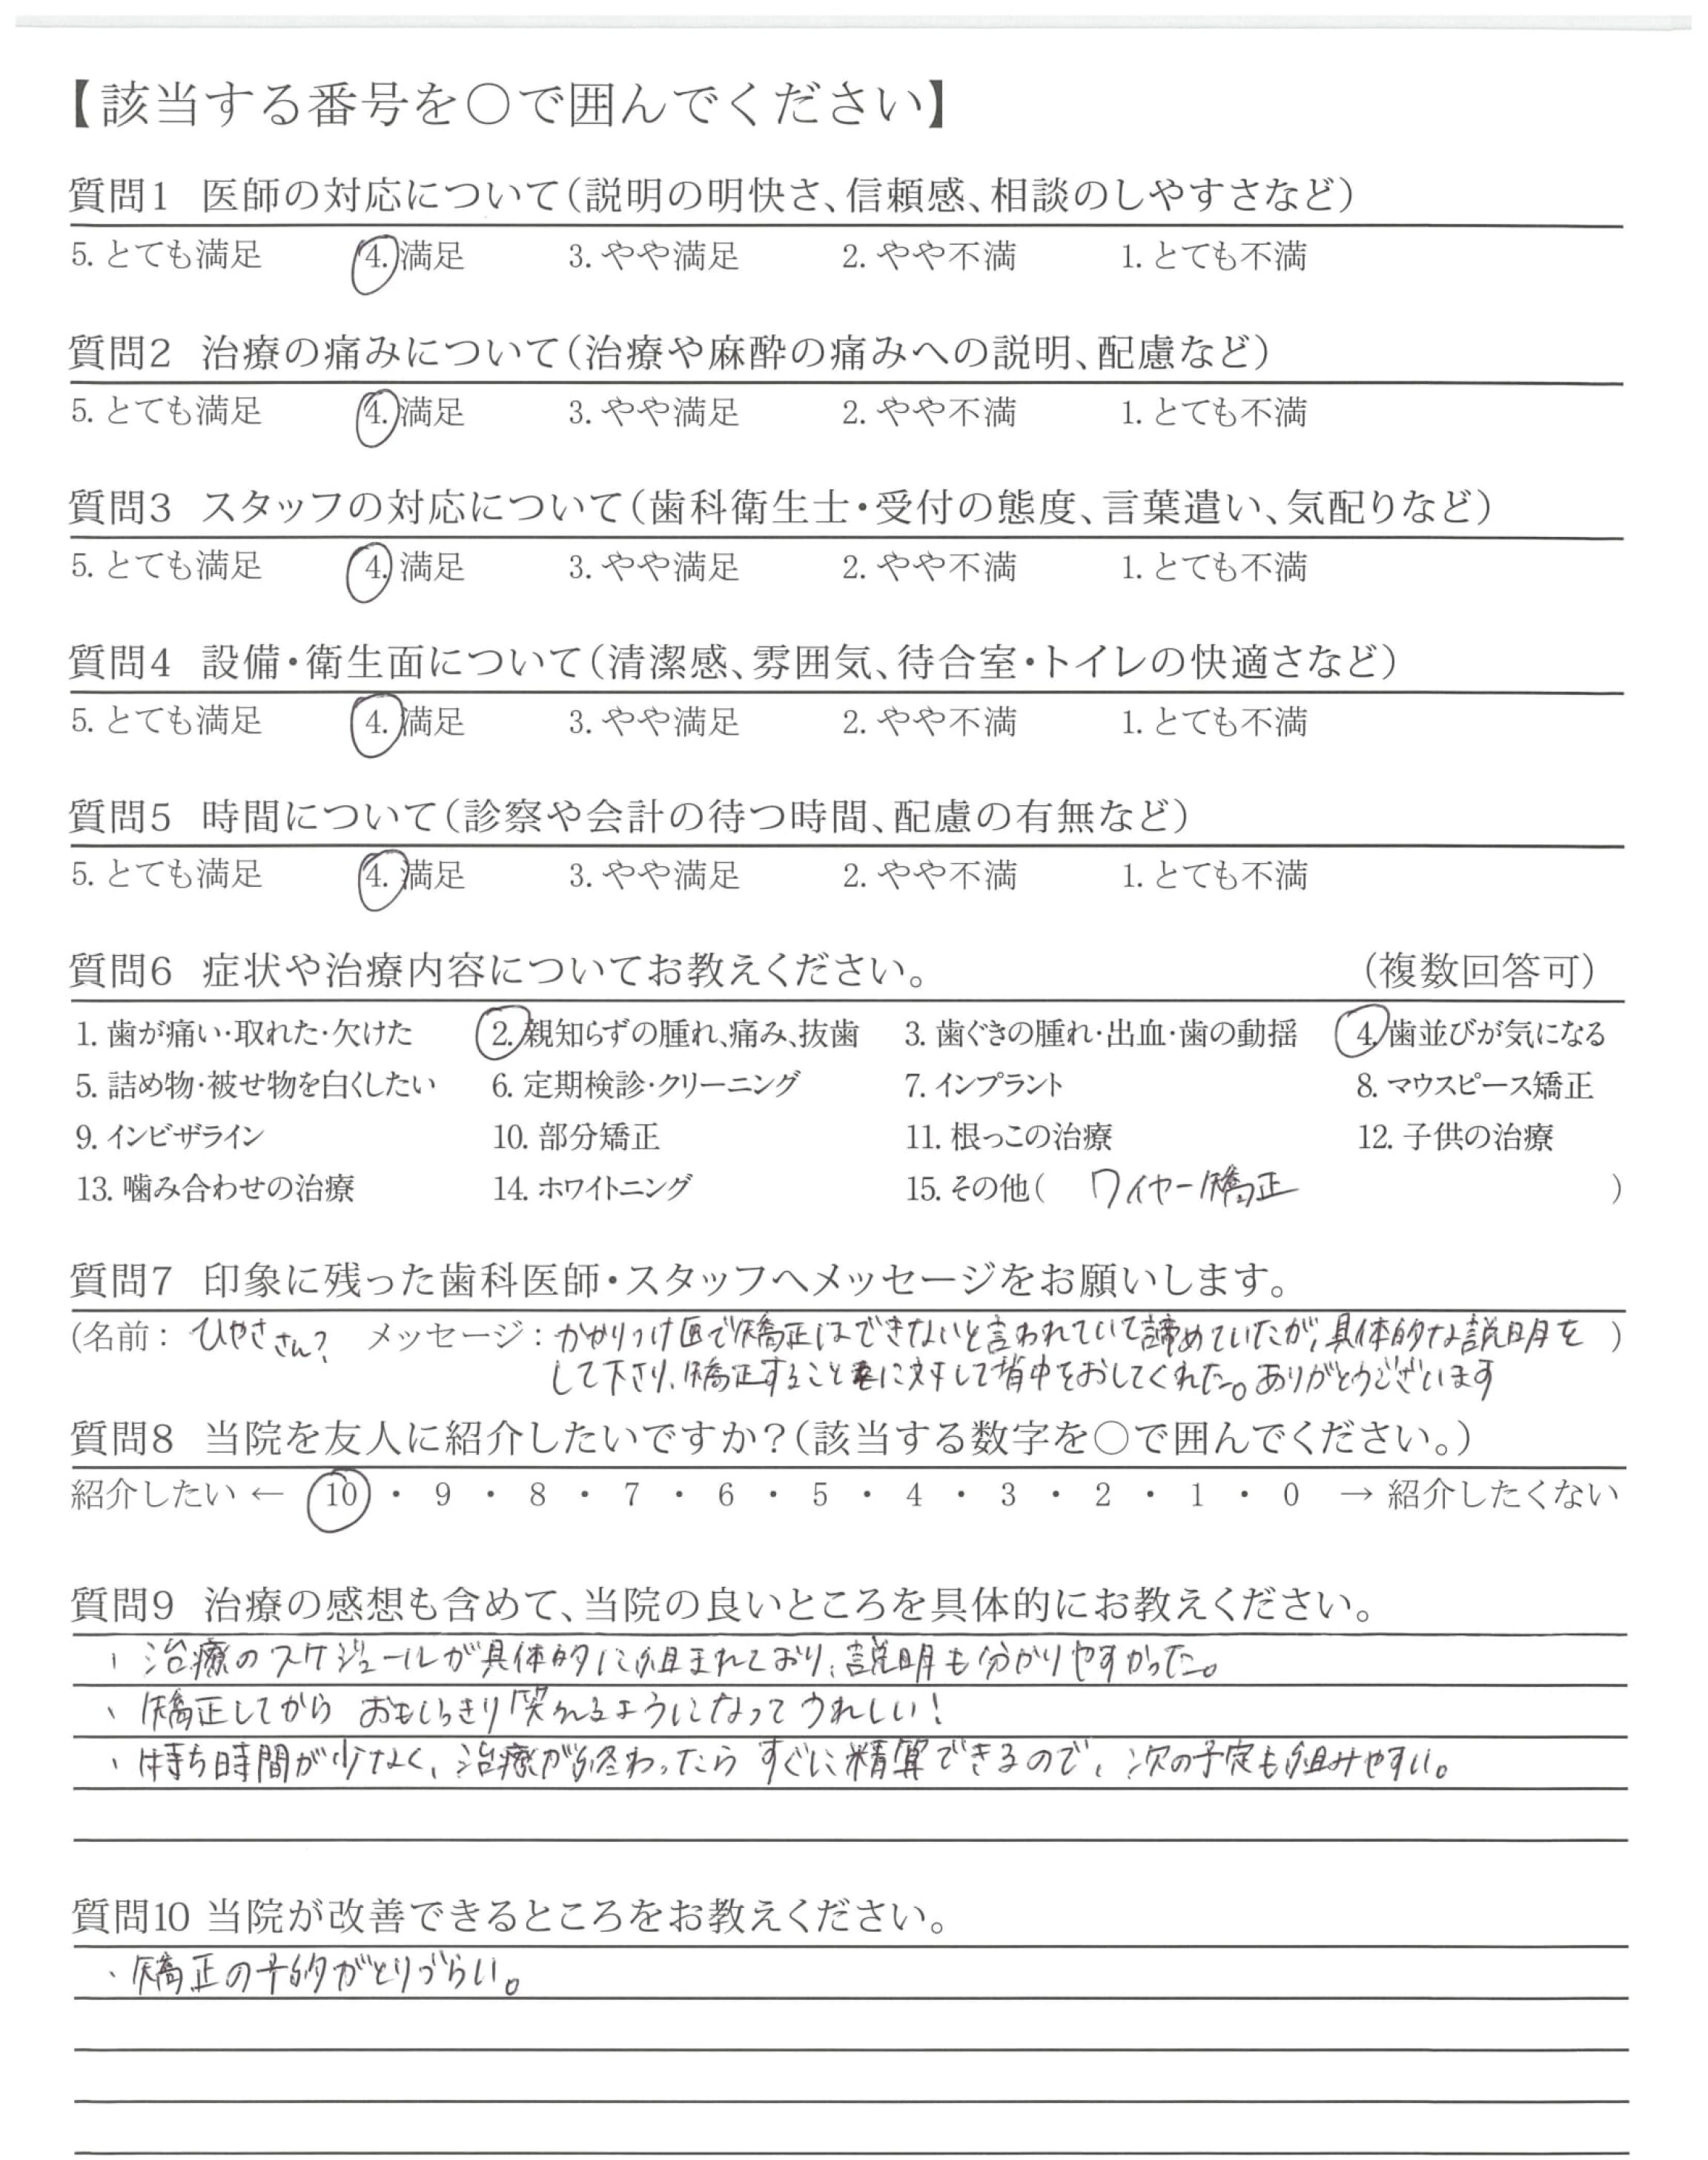 【該当する番号を〇で囲んでください】
質問1 医師の対応について（説明の明快さ、信頼感、相談のしやすさなど）
5. とても満足 4. 満足 3. やや満足 2. やや不満 1. とても不満
質問2 治療の痛みについて（治療や麻酔の痛みへの説明、配慮など）
5. とても満足 4. 満足 3. やや満足 2. やや不満 1. とても不満
質問3 スタッフの対応について（歯科衛生士・受付の態度、言葉遣い、気配りなど）
5. とても満足 4. 満足 3. やや満足 2. やや不満 1. とても不満
質問4 設備・衛生面について（清潔感、雰囲気、待合室・トイレの快適さなど）
5. とても満足 4. 満足 3. やや満足 2. やや不満 1. とても不満
質問5 時間について（診察や会計の待つ時間、配慮の有無など）
5. とても満足 4. 満足 3. やや満足 2. やや不満 1. とても不満
質問6 症状や治療内容についてお教えください。 （複数回答可）
1. 歯が痛い・取れた・欠けた 2. 親知らずの腫れ、痛み、抜歯 3. 歯ぐきの腫れ・出血・歯の動揺 4. 歯並びが気になる
5. 詰め物・被せ物を白くしたい 6. 定期検診・クリーニング 7. インプラント 8. マウスピース矯正
9. インビザライン 10. 部分矯正 11. 根っこの治療 12. 子供の治療
13. 噛み合わせの治療 14. ホワイトニング 15. その他（ ワイヤー矯正 ）
質問7 印象に残った歯科医師・スタッフへメッセージをお願いします。
（名前： ひやささん？ メッセージ：かかりつけ医で矯正はできないと言われていて諦めていたが、具体的な説明を ）
して下さり、矯正することに対して背中をおしてくれた。ありがとうございます
質問8 当院を友人に紹介したいですか？（該当する数字を〇で囲んでください。）
紹介したい ← 10 ・ 9 ・ 8 ・ 7 ・ 6 ・ 5 ・ 4 ・ 3 ・ 2 ・ 1 ・ 0 → 紹介したくない
質問9 治療の感想も含めて、当院の良いところを具体的にお教えください。
、治療のスケジュールが具体的に組まれており、説明も分かりやすかった。
、矯正してから おもいっきり笑えるようになってうれしい！
、待ち時間が少なく、治療が終わったら すぐに精算できるので、次の予定も組みやすい。
質問10 当院が改善できるところをお教えください。
、矯正の予約がとりづらい。